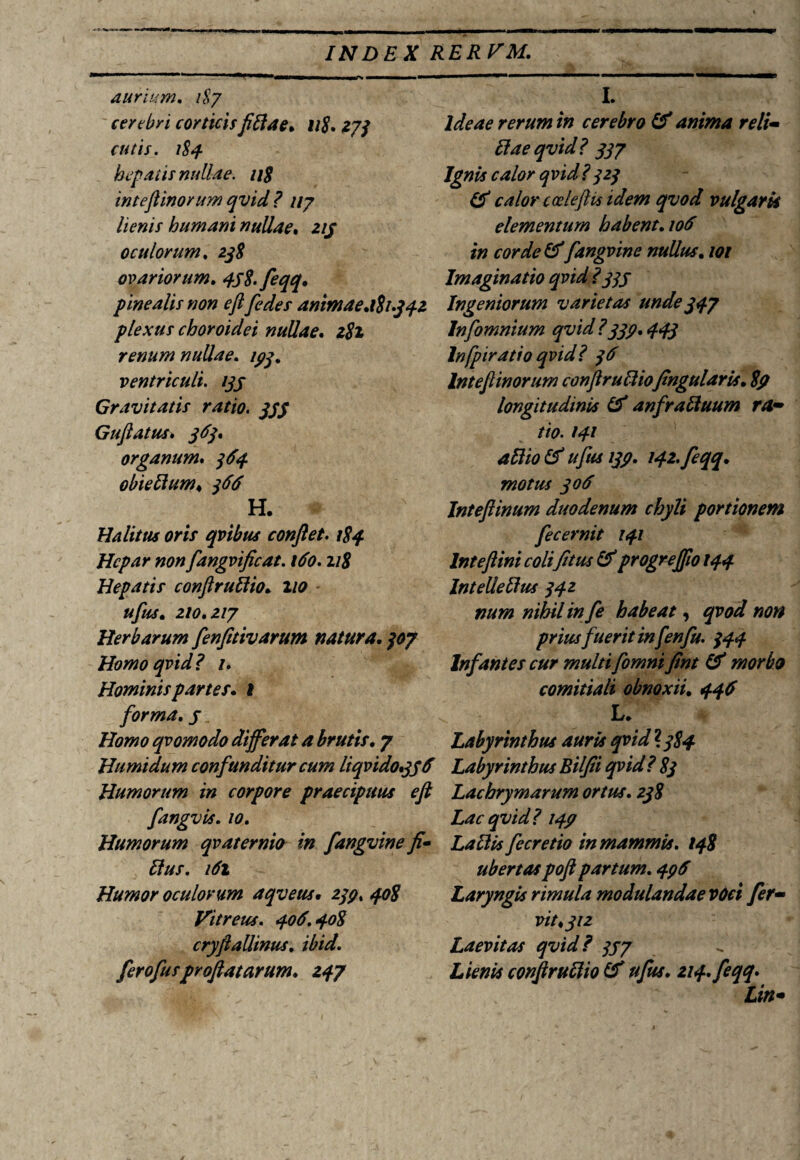 INDEX RERVM.
aurium. 187
cerebri corticis fictae. 118. 273
cutis. 184
hepatis nullae. 118
intestinorum qvid? 117
lienis humani nullae. 215
oculorum. 238
ovariorum. 458. seqq.
pinealis non est sedes animae.181.342
plexus choroidei nullae. 281
renum nullae. 193.
ventriculi. 135
Gravitatis ratio. 355
Gustatus. 363.
organum. 364
obiectum. 366
H.
Halitus oris qvibus constet. 184
Hepar non sangvificat. 160. 218
Hepatis constructio. 210
usus. 210. 217
Herbarum sensitivarum natura. 307
Homo qvid? 1.
Hominis partes. 1
forma. 5
Homo qvomodo differat a brutis. 7
Humidum confunditur cum liqvido.356
Humorum in corpore praecipuus est
sangvis. 10.
Humorum qvaternio in sangvine fi-
ctus. 161
Humor oculorum aqveus. 239. 408
Vitreus. 406. 408
crystallinus. ibid.
serosus prostatarum. 247
I.
Ideae rerum in cerebro & anima reli-
ctae qvid? 337
Ignis calor qvid? 323
& calor coelestis idem qvod vulgaris
elementum habent. 106
in corde & sangvine nullus. 101
Imaginatio qvid? 335
Ingeniorum varietas unde 347
Insomnium qvid? 339. 443
Inspiratio qvid? 36
Intestinorum constructio singularis. 89
longitudinis & anfractuum ra-
tio. 141
actio & usus 139. 142. seqq.
motus 306
Intestinum duodenum chyli portionem
secernit 141
Intestini coli situs & progressio 144
Intellectus 342
num nihil in se habeat, qvod non
prius fuerit in sensu. 344
Infantes cur multi somni sint & morbo
comitiali obnoxii. 446
L.
Labyrinthus auris qvid? 384
Labyrinthus Bilsii qvid? 83
Lachrymarum ortus. 238
Lac qvid? 149
Lactis secretio in mammis. 148
ubertas post partum. 496
Laryngis rimula modulandae voci ser-
vit. 312
Laevitas qvid? 357
Lienis constructio & usus. 214. seqq.
Lin-